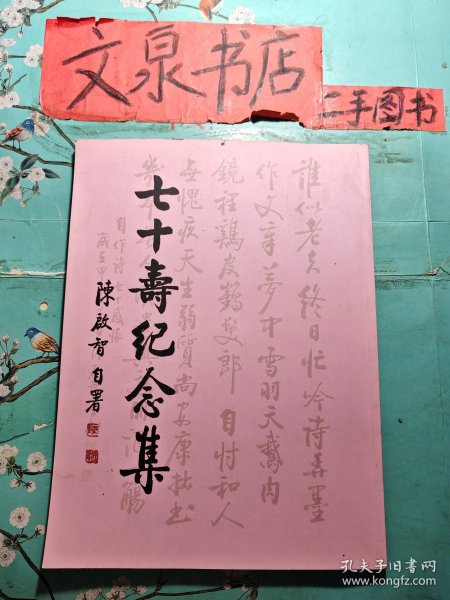 文泉书店
二手图书
七十壽纪念集
陳啟智自署
誰似老夫終日忙吟詩弄墨
作文章夢中雪羽天鵝肉
鏡裡鷄皮鶴髮郎自忖和人
無愧疚天生弱質尚安康拙书
自作诗七十感怀
孔夫子旧书网
www.kongfz.com